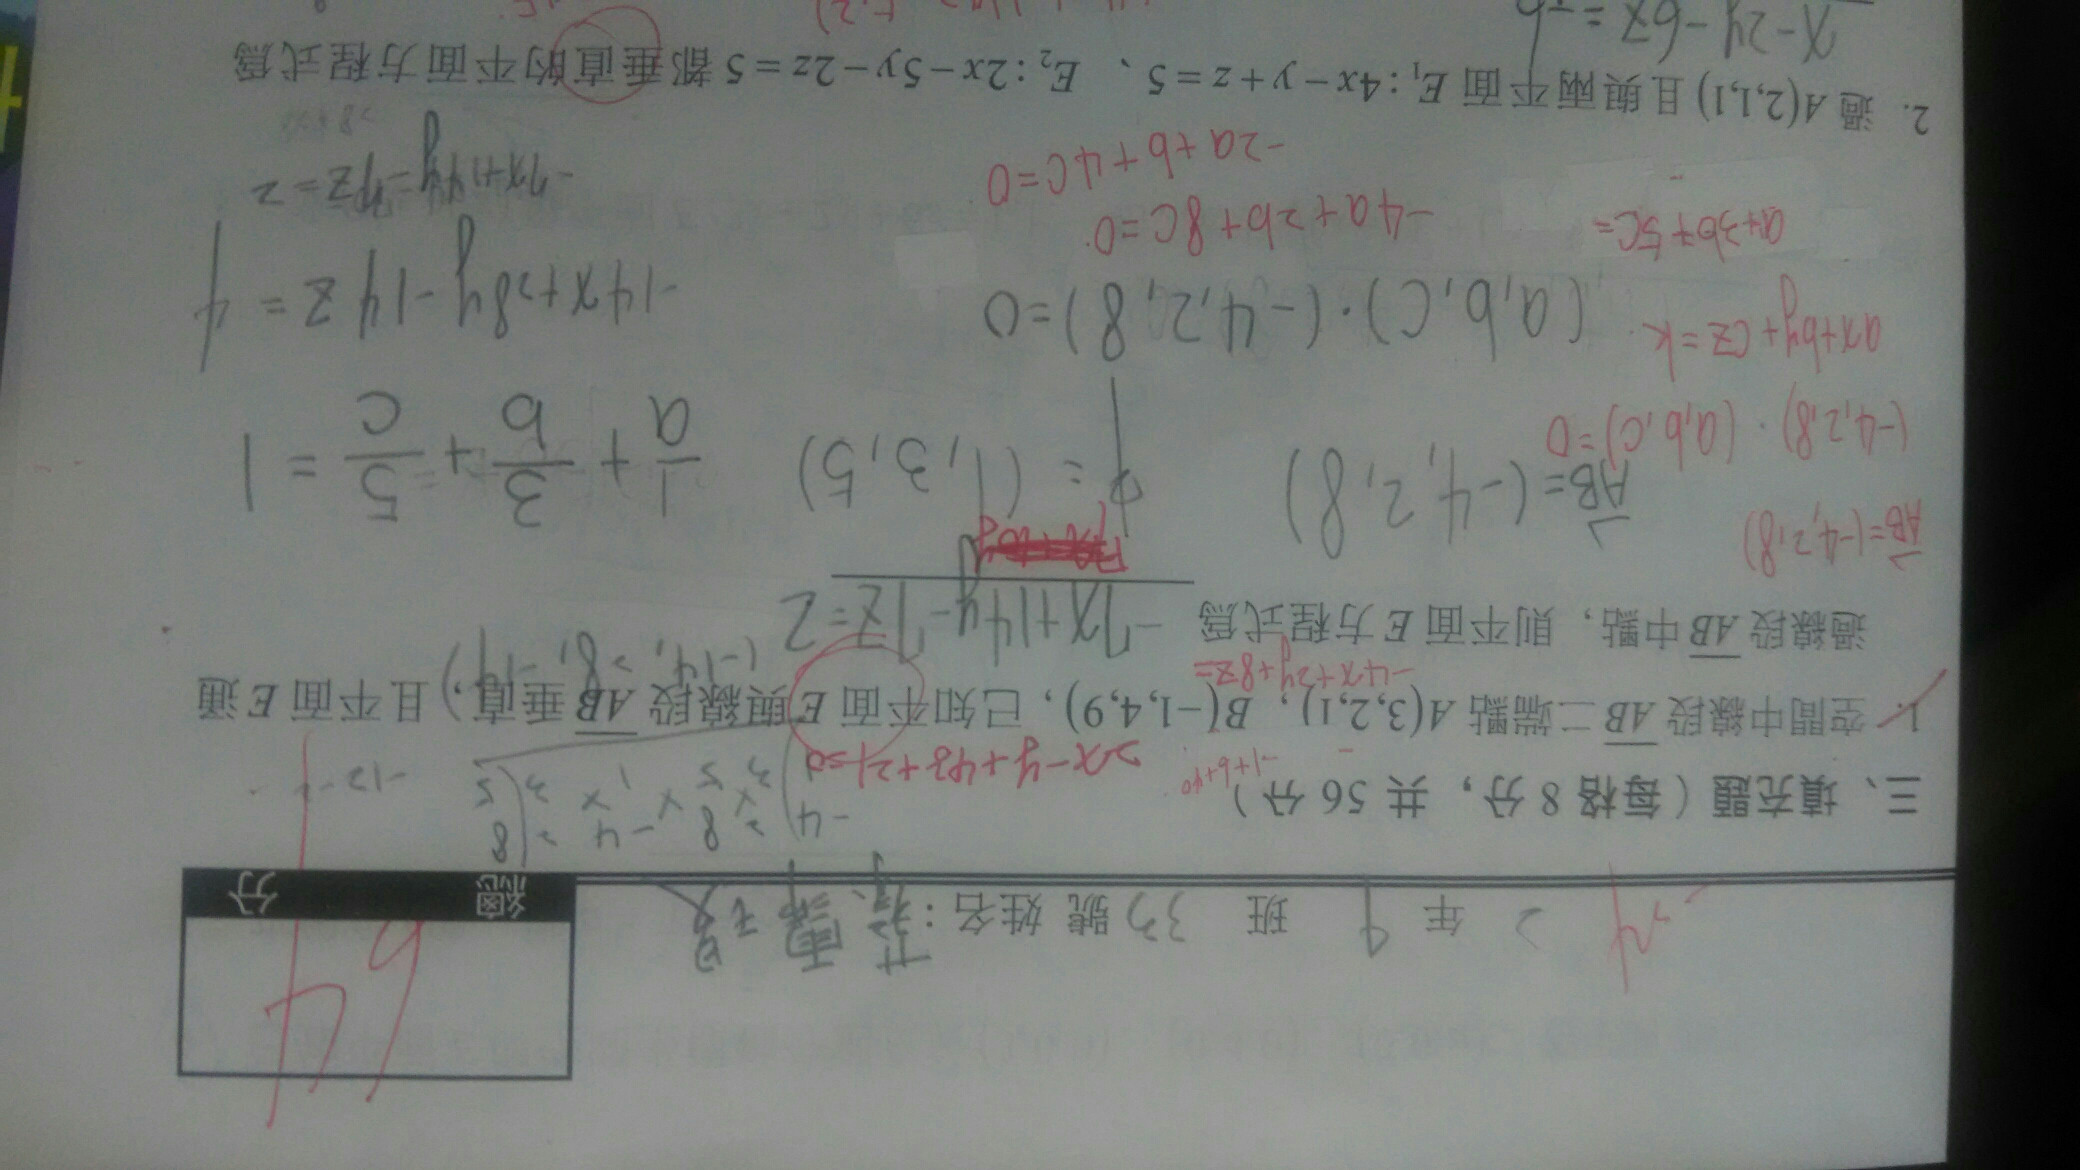 2 年 9 班 33 號 姓名：
總 分
64
三、填充題（每格 8 分，共 56 分）
2x-y+4z+21=0
1. 空間中線段 AB 二端點 A(3,2,1)，B(−1,4,9)，已知平面 E 與線段 AB 垂直，且平面 E 通
-4x+2y+8z=
(-14, 28, -14)
過線段 AB 中點，則平面 E 方程式為 -7x+14y-7z=2
AB=(-4,2,8)
AB=(-4,2,8)
中=(1,3,5)
1/a + 3/b + 5/c = 1
(-4,2,8)·(a,b,c)=0
ax+by+cz=k
(a,b,c)·(-4,2,8)=0
-14x+28y-14z=4
a+3b+5c=
-4a+2b+8c=0
-2a+b+4c=0
-7x+14y-7z=2
2. 過 A(2,1,1) 且與兩平面 E₁:4x−y+z=5、E₂:2x−5y−2z=5 都垂直的平面方程式為
x-2y-6z=-6